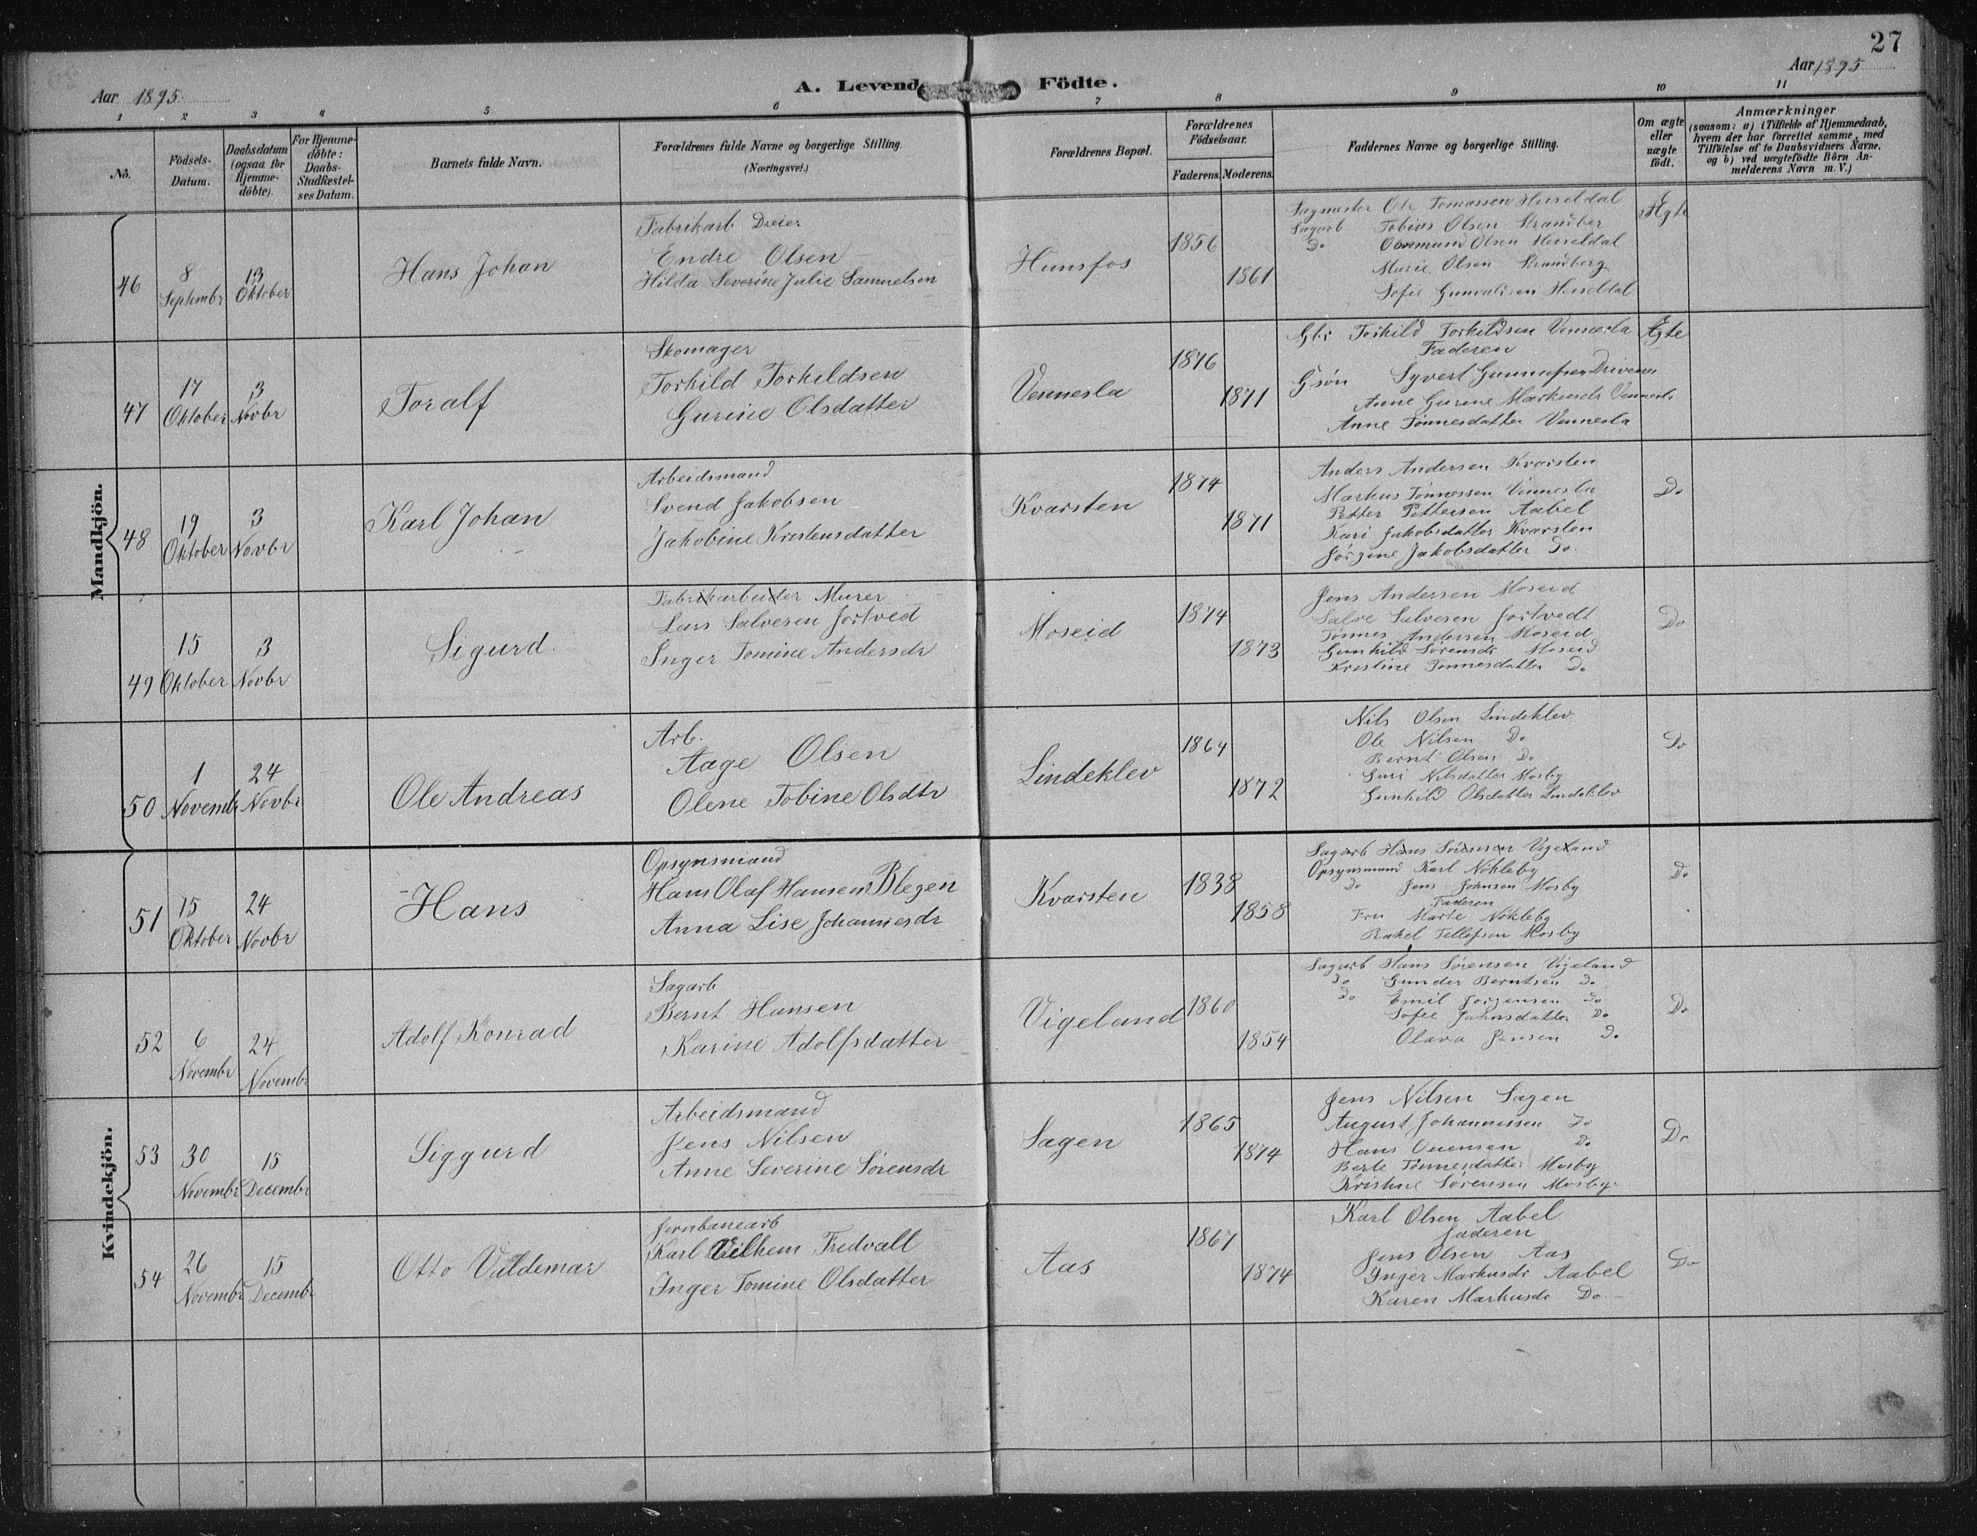 27
Aar 1895.
A. Levend Födte.
Aar 1895
1 2 3 4 5 6 7 8 9 10 11
No.
Födsels-Datum.
Daabsdatum (ogsaa for Hjemme-döbte).
For Hjemme-döbte: Daabs-Stadfæstel-ses Datum.
Barnets fulde Navn.
Forældrenes fulde Navne og borgerlige Stilling.
(Næringsvei.)
Forældrenes Bopæl.
Forældrenes Födselsaar.
Faderens. Moderens.
Faddernes Navne og borgerlige Stilling.
Om ægte eller uægte födt.
Anmærkninger
(saasom: a) i Tilfælde af Hjemmedaab, hvem der har forrettet samme, med Tilföielse af to Daabsvidners Navne. og b) ved uægtefödte Börn An-melderens Navn m. V.)
Mandkjön.
46
8 Septembr
13 Oktober
Hans Johan
Fabrikarb Dreier
Endre Olsen
Hilda Severine Julie Samuelsen
Hunsfos
1856
1861
Sagmester Ole Tomassen Heiseldal
Sagarb Tobias Olsen Strandber
Do Osmund Olsen Heiseldal
Marie Olsen Strandberg
Sofie Gunvaldsen Heiseldal
Ægte
47
17 Oktober
3 Novbr
Toralf
Skomager
Torkild Torkildsen
Gurine Olsdatter
Vennesla
1876
1871
Gbr Torkild Torkildsen Vennesla
Faderen
Gsøn Syvert Gunnufsen Drivenes
Anne Gurine Markusdr Vennesla
Anne Tønnesdatter Vennesla
Ægte
48
19 Oktober
3 Novbr
Karl Johan
Arbeidsmand
Svend Jakobsen
Jakobine Kristensdatter
Kvarsten
1874
1871
Anders Andersen Kvarsten
Markus Tønnessen Vennesla
Petter Pettersen Aabel
Kari Jakobsdatter Kvarsten
Jørgine Jakobsdatter Do.
Do
49
15 Oktober
3 Novbr
Sigurd.
Fabrikarbeider Murer
Lars Salvesen Jortved
Inger Tomine Andersdr
Moseid
1874
1873
Jens Andersen Moseid
Salve Salvesen Jortvedt
Tønnes Andersen Moseid
Gunhild Sørensdr Moseid
Kristine Tønnesdatter Do
Do
50
1 Novembr
24 Novbr
Ole Andreas
Arb.
Aage Olsen
Olene Tobine Olsdtr
Lindeklev
1864
1872
Nils Olsen Lindeklev
Ole Nilsen Do
Bernt Olsen Do
Guri Nilsdatter Mosby
Gunhild Olsdatter Lindeklev
Do
Kvindekjön.
51
15 Oktober
24 Novbr
Hans
Opsynsmand
Hans Olaf Hansen Blegen
Anna Lise Johannesdr
Kvarsten
1838
1858
Sagarb Hans Sørensen Vigeland
Opsynsmand Karl Nökleby
Do Jens Johnsen Mosby
Faderen
Fru Marte Nökleby
Rakel Tellefsen Mosby
Do
52
6 Novembr
24 Novembr
Adolf Konrad
Sagarb
Bernt Hansen
Karine Adolfsdatter
Vigeland
1860
1854
Sagarb Hans Sørensen Vigeland
Do Gunder Berntsen Do
Do Emil Jørgensen Do
Sofie Jahnsdatter Do
Olava Jensen Do
Do
53
30 Novembr
15 Decembr
Siggurd
Arbeidsmand
Jens Nilsen
Anne Severine Sørensdr
Sagen
1865
1874
Jens Nilsen Sagen
August Johannessen Do
Hans Do
Berte Tønnesdatter Mosby
Kristine Sørensen Mosby
Do
54
26 Novembr
15 Decembr
Otto Valdemar
Jernbanearb
Karl Vilhem Fredvall
Inger Tomine Olsdatter
Aas
1867
1874
Karl Olsen Aabel
Faderen
Jens Olsen Aas
Inger Markusdr Aabel
Karen Markusdr Do
Do